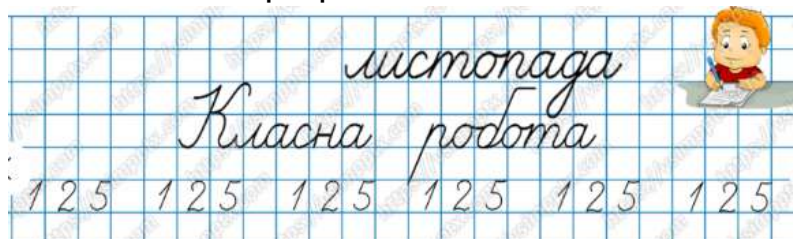 листопада
Класна робота
125 125 125 125 125 125